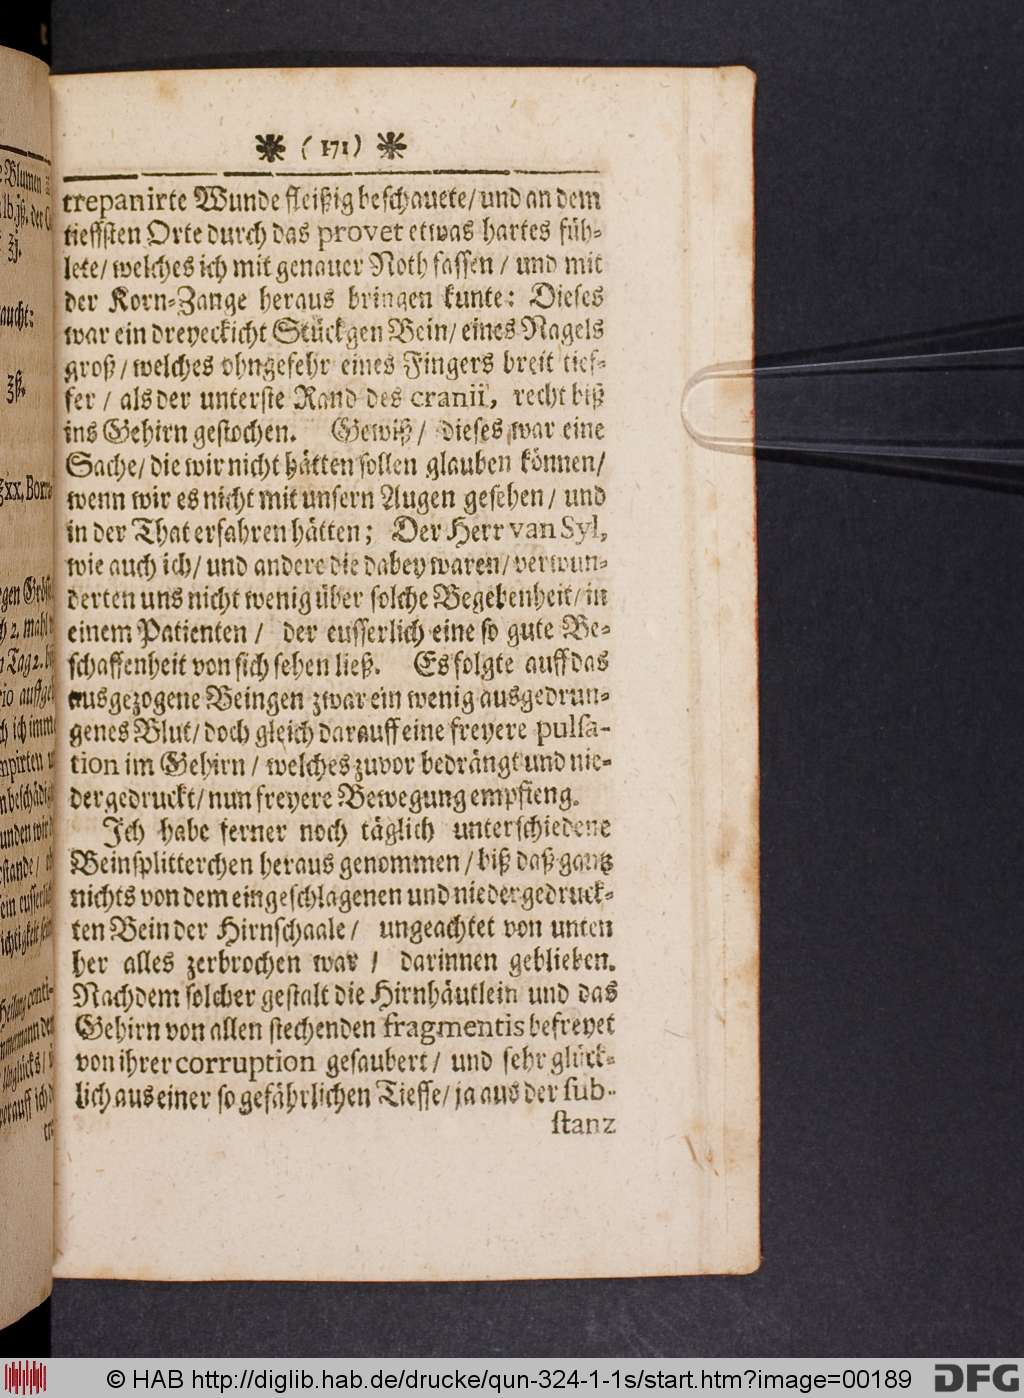 ❋ ( 171 ) ❋
trepanirte Wunde fleißig beschauete/ und an dem
tieffsten Orte durch das provet etwas hartes füh-
lete/ welches ich mit genauer Noth fassen / und mit
der Korn-Zange heraus bringen kunte: Dieses
war ein dreyeckicht Stückgen Bein/ eines Nagels
groß / welches ohngefehr eines Fingers breit tief-
fer / als der unterste Rand des cranii, recht biß
ins Gehirn gestochen. Gewiß / dieses war eine
Sache/ die wir nicht hätten sollen glauben können/
wenn wir es nicht mit unsern Augen gesehen / und
in der That erfahren hätten; Der Herr van Syl,
wie auch ich/ und andere die dabey waren/ verwun-
derten uns nicht wenig über solche Begebenheit/ in
einem Patienten / der eusserlich eine so gute Be-
schaffenheit von sich sehen ließ. Es folgte auff das
ausgezogene Beingen zwar ein wenig ausgedrun-
genes Blut/ doch gleich darauff eine freyere pulsa-
tion im Gehirn / welches zuvor bedrängt und nie-
dergedruckt/ nun freyere Bewegung empfieng.
Ich habe ferner noch täglich unterschiedene
Beinsplitterchen heraus genommen / biß daß gantz
nichts von dem eingeschlagenen und niedergedruck-
ten Bein der Hirnschaale / ungeachtet von unten
her alles zerbrochen war / darinnen geblieben.
Nachdem solcher gestalt die Hirnhäutlein und das
Gehirn von allen stechenden fragmentis befreyet
von ihrer corruption gesaubert / und sehr glück-
lich aus einer so gefährlichen Tieffe/ ja aus der sub-
stanz
Blumen
lb.jß. der
ʒj.
aucht:
ʒß.
ʒxx, Bor
2. mahl
Tag 2.
© HAB http://diglib.hab.de/drucke/qun-324-1-1s/start.htm?image=00189
DFG